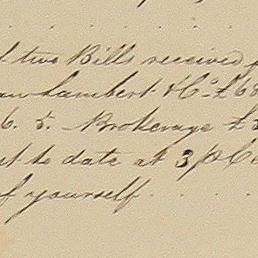 two Bills received
Lambert & Co £68
6. 5. Brokerage £3
to date at 3 p Ce
of yourself